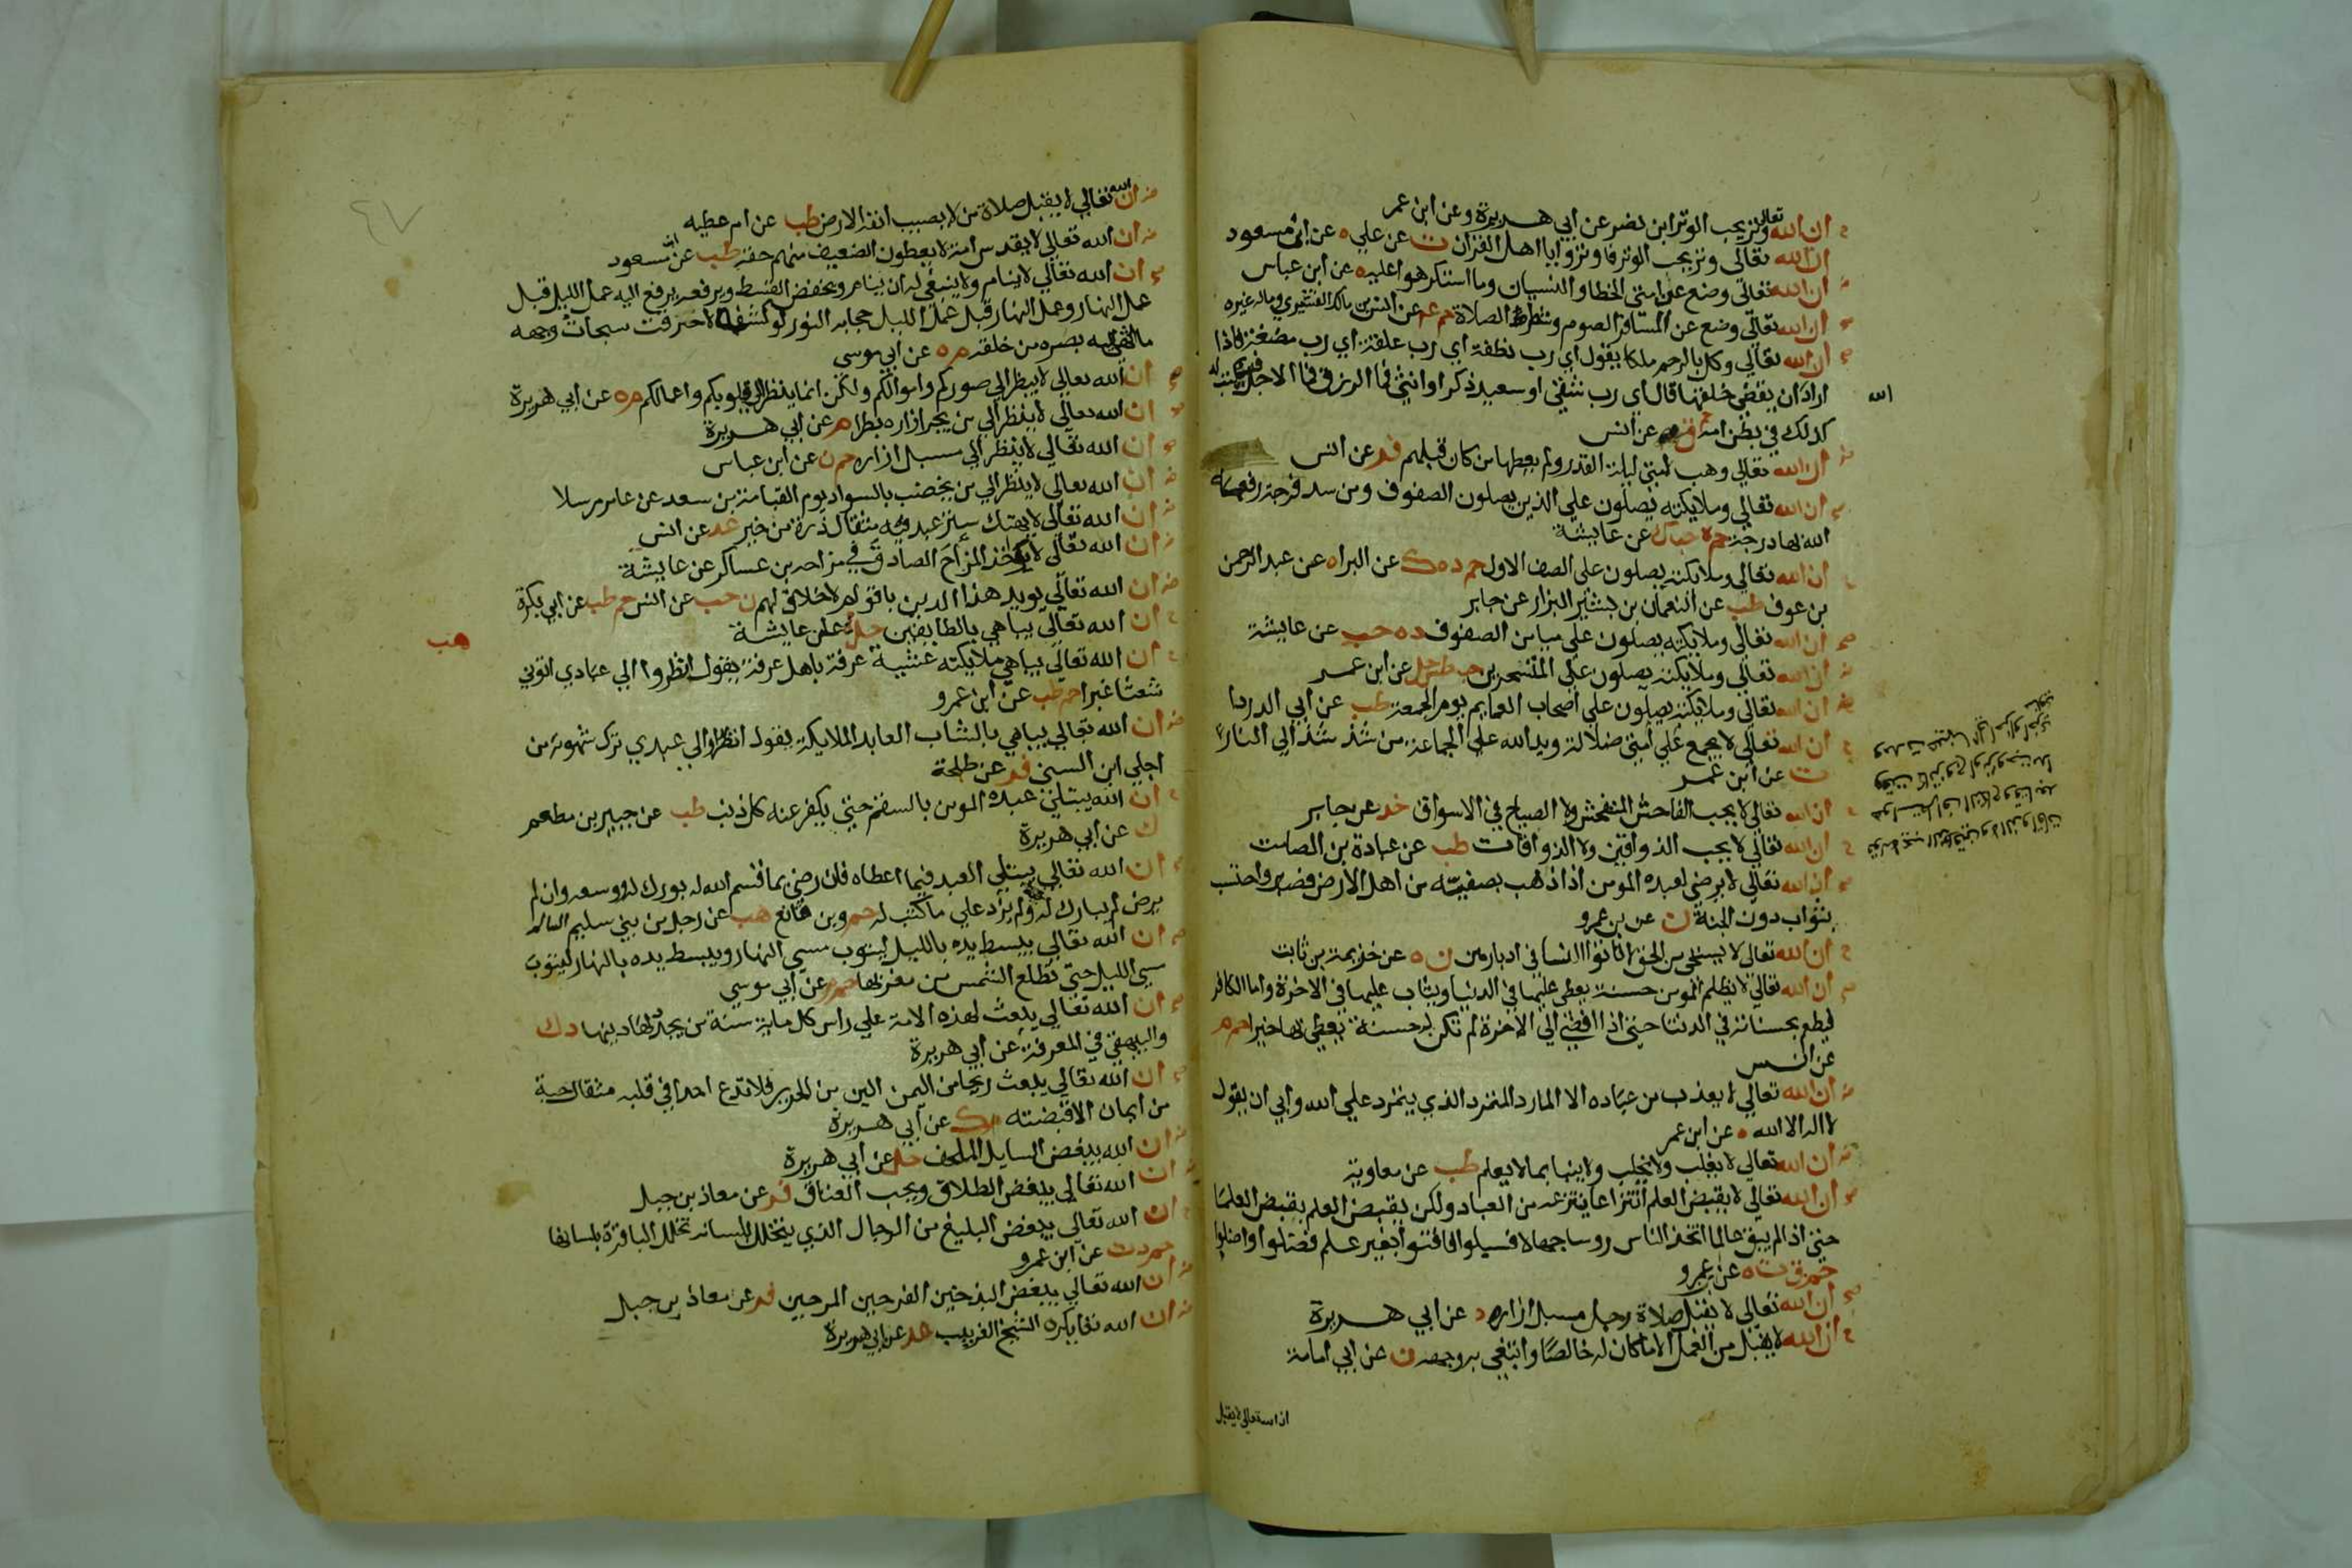 ان الله تعالى وتر يحب الوتر ابن نصر عن ابي هريرة وعن ابن عمر
ان الله تعالى وتر يحب الوتر فاوتروا يا اهل القران ت عن علي ه عن ابن مسعود
ان الله تعالى وضع عن امتي الخطا والنسيان وما استكرهوا عليه ه عن ابن عباس
ان الله تعالى وضع عن المسافر الصوم وشطر الصلاة حم عم عن انس بن مالك القشيري وماله غيره
ان الله تعالى وكل بالرحم ملكا يقول اي رب نطفة اي رب علقة اي رب مضغة فاذا
اراد ان يقضي خلقها قال اي رب شقي او سعيد ذكر او انثى فما الرزق فما الاجل فيكتب
الله
كذلك في بطن امه حم ق عن انس
ان الله تعالى وهب لامتي ليلة القدر ولم يعطها من كان قبلهم فر عن انس
ان الله تعالى وملايكته يصلون علي الذين يصلون الصفوف ومن سد فرجة رفعه
الله بها درجة حم ه حب ك عن عايشة
ان الله تعالى وملايكته يصلون على الصف الاول حم د ه ك عن البرا ه عن عبد الرحمن
بن عوف طب عن النعمان بن بشير البزار عن جابر
ان الله تعالى وملايكته يصلون علي ميامن الصفوف د ه حب عن عايشة
ان الله تعالى وملايكته يصلون على المتسحرين حب طس حل عن ابن عمر
ان الله تعالى وملايكته يصلون على اصحاب العمايم يوم الجمعة طب عن ابي الدردا
ان الله تعالى لا يجمع علي امتي ضلالة ويد الله على الجماعة من شذ شذ الي النار
ت عن ابن عمر
ان الله تعالى لا يحب الفاحش المتفحش ولا الصياح في الاسواق خد عن جابر
ان الله تعالى لا يحب الذواقين ولا الذواقات طب عن عبادة بن الصامت
ان الله تعالى لا يرضى لعبده المومن اذا ذهب بصفيه من اهل الارض فصبر واحتسب
بثواب دون الجنة ن عن بن عمرو
ان الله تعالى لا يستحي من الحق لا تاتوا النسا في ادبارهن ن ه عن خزيمة بن ثابت
ان الله تعالى لا يظلم المومن حسنة يعطى عليها في الدنيا ويثاب عليها في الاخرة واما الكافر
فيطعم بحسناته في الدنيا حتى اذا افضى الى الاخرة لم تكن له حسنة يعطى بها خيرا حم م
عن انس
ان الله تعالى لا يعذب من عباده الا المارد المتمرد الذي يتمرد علي الله وابي ان يقول
لا اله الا الله ه عن ابن عمر
ان الله تعالى لا يغلب ولا يخلب ولا ينبا بما لا يعلم طب عن معاوية
ان الله تعالى لا يقبض العلم انتزاعا ينتزعه من العباد ولكن يقبض العلم بقبض العلما
حتى اذا لم يبق عالما اتخذ الناس روسا جهالا فسيلوا فافتوا بغير علم فضلوا واضلوا
حم ق ت ه عن بن عمرو
ان الله تعالى لا يقبل صلاة رجل مسبل ازاره د عن ابي هريرة
ان الله لا يقبل من العمل الا ما كان له خالصا وابتغي به وجهه ن عن ابي امامة
ان الله تعالى لا يقبل
ان الله تعالي لا يقبل صلاة من لا يصيب انفه الارض طب عن ام عطيه
ان الله تعالي لا يقدس امة لا يعطون الضعيف منهم حقه طب عن ابن مسعود
ان الله تعالي لا ينام ولا ينبغي له ان ينام ويخفض القسط ويرفعه يرفع اليه عمل الليل قبل
عمل النهار وعمل النهار قبل عمل الليل حجابه النور لو كشفه لاحترقت سبحات وجهه
ما انتهى اليه بصره من خلقه م ه عن ابي موسي
ان الله تعالي لا ينظر الي صوركم واموالكم ولكن انما ينظر الي قلوبكم واعمالكم م ه عن ابي هريرة
ان الله تعالي لا ينظر الي من يجر ازاره بطرا م عن ابي هريرة
ان الله تعالي لا ينظر الي مسبل ازاره حم ن عن ابن عباس
ان الله تعالي لا ينظر الي من يخضب بالسواد يوم القيامة بن سعد عن عامر مرسلا
ان الله تعالي لا يهتك ستر عبد فيه مثقال ذرة من خير عد عن انس
ان الله تعالي لا يواخذ المزاح الصادق في مزاحه بن عساكر عن عايشة
ان الله تعالي يويد هذا الدين باقوام لا خلاق لهم ن حب عن انس حم طب عن ابي بكرة
ان الله تعالي يباهي بالطايفين حل عن عايشة
هب
ان الله تعالي يباهي ملايكته عشية عرفة باهل عرفة يقول انظروا الي عبادي اتوني
شعثا غبرا حم طب عن ابن عمرو
ان الله تعالي يباهي بالشاب العابد الملايكة يقول انظروا الي عبدي ترك شهوته من
اجلي ابن السني فر عن طلحة
ان الله يبتلي عبده المومن بالسقم حتي يكفر عنه كل ذنب طب عن جبير بن مطعم
ك عن ابي هريرة
ان الله تعالي يبتلي العبد فيما اعطاه فان رضي بما قسم الله له بورك له ووسعه وان لم
يرض لم يبارك له ولم يزد علي ما كتب له حم وبن قانع هب عن رجل من بني سليم
ان الله تعالي يبسط يده بالليل ليتوب مسي النهار ويبسط يده بالنهار ليتوب
مسي الليل حتي تطلع الشمس من مغربها حم م عن ابي موسي
ان الله تعالي يبعث لهذه الامة علي راس كل ماية سنة من يجدد لها دينها د ك
والبيهقي في المعرفة عن ابي هريرة
ان الله تعالي يبعث ريحا من اليمن الين من الحرير فلا تدع احدا في قلبه مثقال حبة
من ايمان الا قبضته م ك عن ابي هريرة
ان الله يبغض السايل الملحف حل عن ابي هريرة
ان الله تعالي يبغض الطلاق ويحب العتاق فر عن معاذ بن جبل
ان الله تعالي يبغض البليغ من الرجال الذي يتخلل بلسانه تخلل الباقرة بلسانها
حم د ت عن ابن عمرو
ان الله تعالي يبغض البذخين الفرحين المرحين فر عن معاذ بن جبل
ان الله تعالي يكره الشيخ الغربيب عد عن ابي هريرة
٤٧